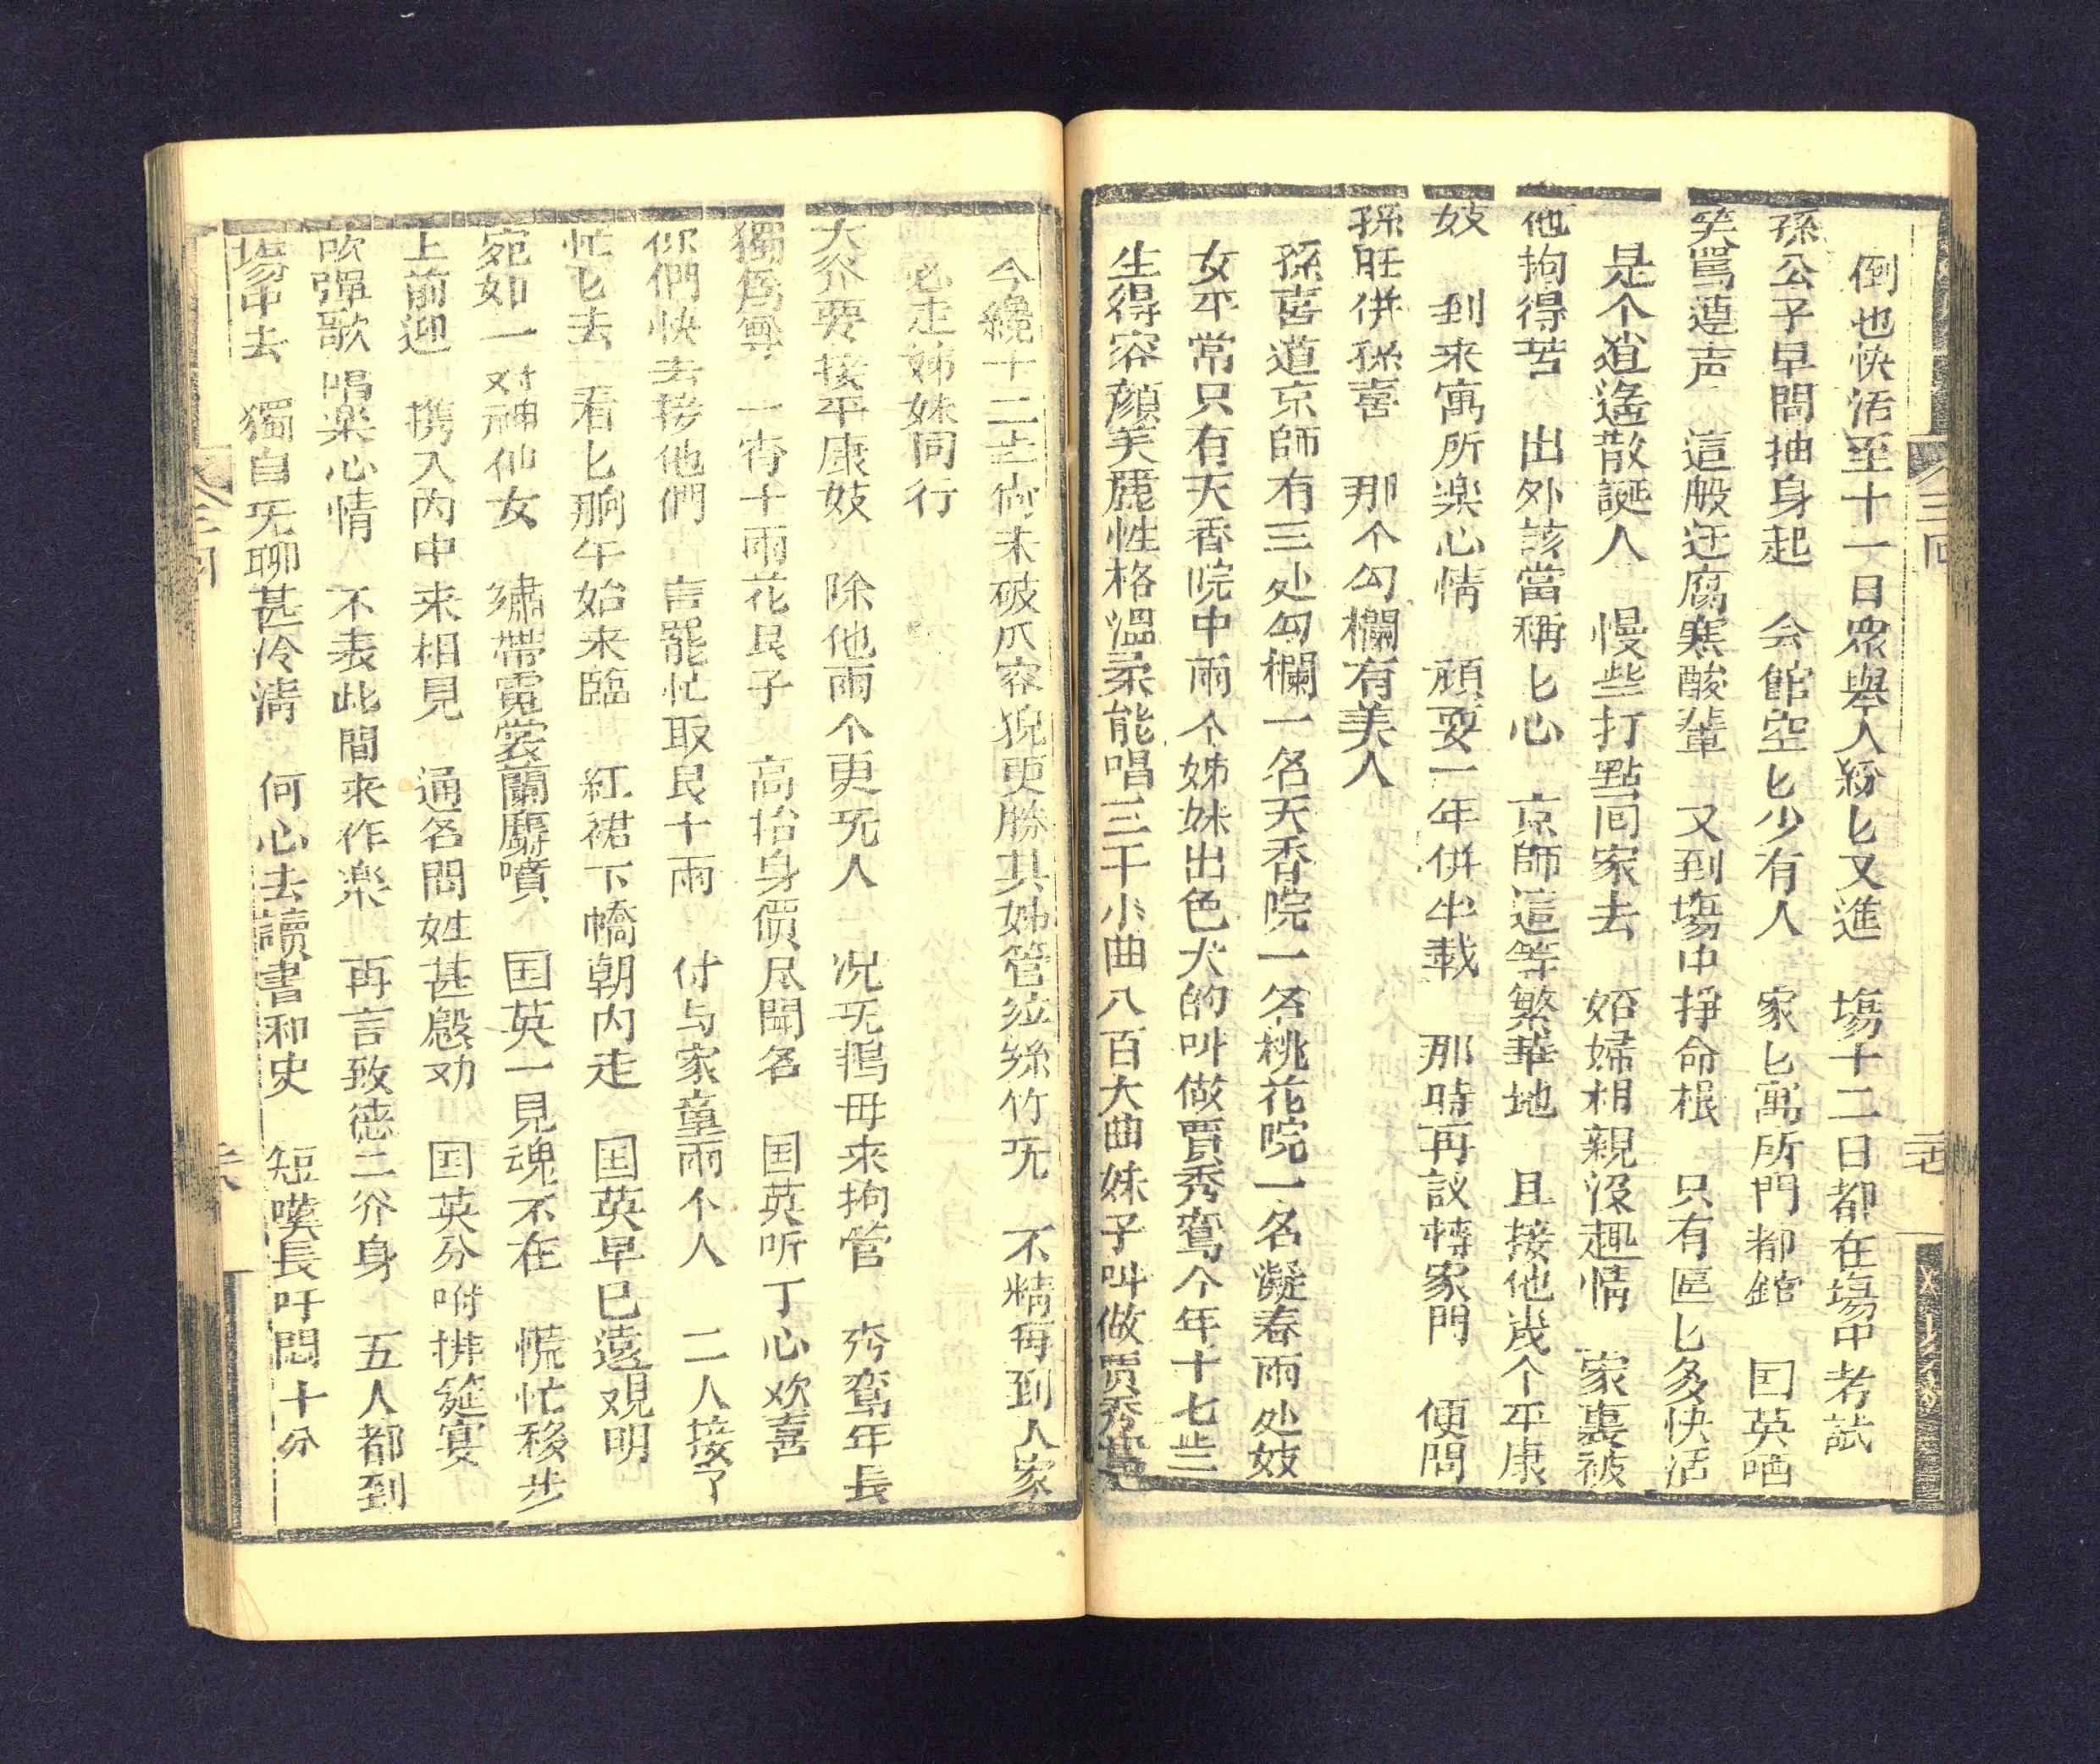 倒也快活至十一日眾舉人紛匕又進　塲十二日都在塲中考試
孫公子早間抽身起　会館空匕少有人　家匕寓所門都舘　囯英哂
笑罵連声　這般迂腐寒酸輩　又到塲中掙命根　只有區匕多快活
是个逍遙散誕人　慢些打點囬家去　妬婦相親沒趣情　家裏被
他拘得苦　出外該當稱匕心　京師這等繁華地　且接他㡬个平康
妓　到来寓所楽心情　頑耍一年併半載　那時再議轉家門　便問
孫旺併孫喜　那个勾欄有美人
孫喜道京師有三处勾欄一名天香院一名桃花院一名凝春雨处妓
女平常只有天香院中両个姊妹出色大的叫做賈秀鸾今年十七些
生得容顔美麗性格溫柔能唱三千小曲八百大曲妹子叫做賈秀
今纔十二些尚未破瓜容貌更勝其姊管弦絲竹旡　不精每到人家
必走姊妹同行
大爷要接平康妓　除他両个更旡人　况旡鴇毋来拘管　秀鸾年長
獨爲尊　一宵十両花艮子　高抬身價尽聞名　囯英听了心欢喜
你們快去接他們　言罷忙取艮十両　付与家童両个人　二人接了
忙匕去　看匕晌午始来臨　紅裙下轎朝内走　囯英早已遠观明
宛如一对神仙女　繡帶霓裳蘭麝噴　囯英一見魂不在　慌忙移步
上前迎　携入内中来相見　通名問姓甚慇劝　囯英分咐排筵宴
吹彈歌唱楽心情　不表此間来作楽　再言致徳二爷身　五人都到
塲中去　獨自旡聊甚冷淸　何心去讀書和史　短嘆長吁悶十分